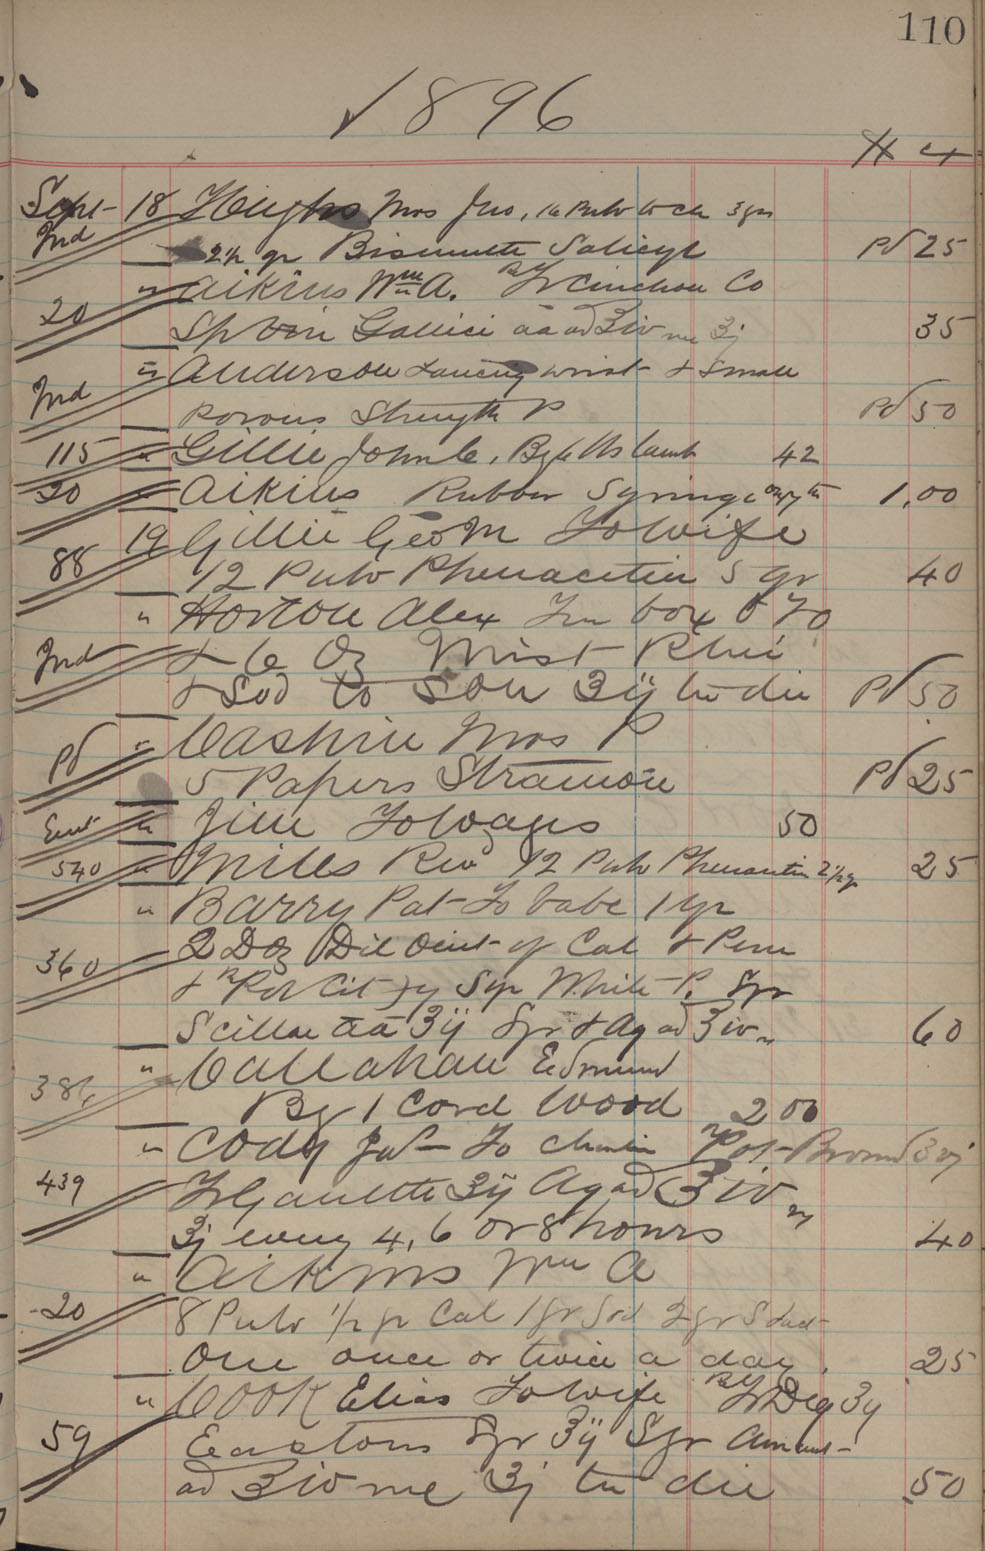 110
1896
Sept 18 Mrs Jno, 3 grs
Ind 2½ gr Bismuth Salicyl Pd 25
20 " Aikins Wm A. Rx Tr Cinchon Co
Sp Vini Gallici aa ad ℥iv ʒj 35
Ind " Anderson Lancing wrist & Small
Porous Strength P Pd 50
115 " Gillie John C, By 6 lbs lamb 42
20 " Aikins Rubber Syringe 1.00
88 19 Gillie Geo M To wife
12 Pulv Phenacetin 5 gr 40
" Horton Alex box
Ind & 6 Oz Mist Rhei
& Sod to Son ʒij ter die Pd 50
Pd " Cashin Mrs P
5 Papers Stramon Pd 25
" Jim To Wages 50
540 " Miles Rev 12 Pulv Phenacetin 2½ gr 25
" Barry Pat To babe 1 yr
360 2 Doz Oint of Cal &
& Rx Pot Cit Syr White P. Syr
Scillae aa ʒij Syr & Aq ad ℥iv 60
386 " Callahan Edmund
By 1 Cord Wood 2 00
" Cody Jas To Charlie Rx Pot Bromid ʒvj
439 Tr ʒij Aq ad ℥iv
ʒj every 4, 6 or 8 hours 40
" Aikins Wm A
20 8 Pulv ½ gr Cal 1 gr Sod 2 gr S Lact
One once or twice a day. 25
" Cook Elias To wife Rx Tr Dig ʒij
59 Eastons Syr ʒij Syr
ad ℥iv ʒj ter die 50